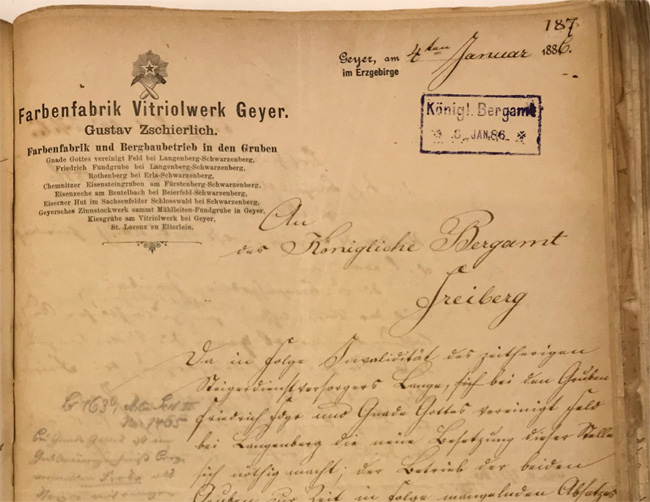 187
Geyer, am 4ten Januar 1886.
im Erzgebirge
Farbenfabrik Vitriolwerk Geyer.
Gustav Zschierlich.
Farbenfabrik und Bergbaubetrieb in den Gruben
Gnade Gottes vereinigt Feld bei Langenberg-Schwarzenberg,
Friedrich Fundgrube bei Langenberg-Schwarzenberg,
Rothenberg bei Erla-Schwarzenberg,
Chemnitzer Eisensteingruben am Fürstenberg-Schwarzenberg,
Eisenzeche am Beutelbach bei Beierfeld-Schwarzenberg,
Eiserner Hut im Sachsenfelder Schlosswald bei Schwarzenberg,
Geyersches Zinnstockwerk sammt Mühlleiten-Fundgrube in Geyer,
Kiesgrube am Vitriolwerk bei Geyer,
St. Lorenz zu Elterlein.
Königl. Bergamt
8. JAN.86
An
das Königliche Bergamt
Freiberg
Da in folge Invalidität des zeitherigen
Steigerdienstversorgers Lange, sich bei den Gruben
Friedrich fdgr und Gnade Gottes vereinigt feld
bei Langenberg die neue Besetzung dieser Stelle
sich nöthig macht; der Betrieb der beiden
Gruben zur Zeit in folge mangelnden Absatzes